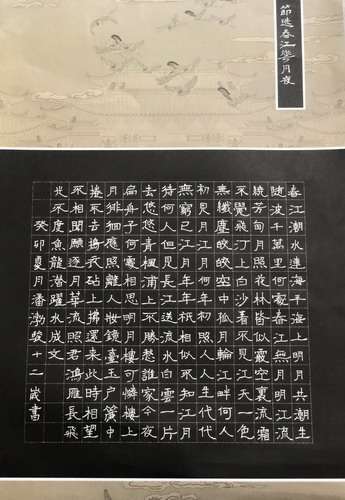 節選春江花月夜
春江潮水連海平海上明月共潮生
随波千萬里何處春江無月明江流
繞芳甸月照花林皆似霰空裏流霜
不覺飛汀上白沙看不見江天一色
無纖塵皎皎空中孤月輪江畔何人
初見月江月何年初照人人生代代
無窮已江月年年祇相似不知江月
待何人但見長江送流水白雲一片
去悠悠青楓浦上不勝愁誰家今夜
扁舟子何處相思明月樓可憐樓上
月徘徊應照離人妝鏡臺玉戶簾中
捲不去擣衣砧上拂還來此時相望
不相聞願逐月華流照君鴻雁長飛
光不度魚龍潛躍水成文
癸卯夏月潘渤駿十二歲書